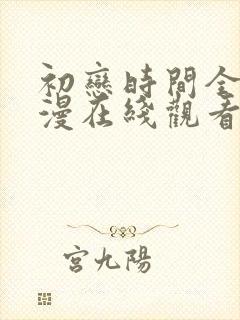 初戀時間全
漫在綫觀看
宮九陽